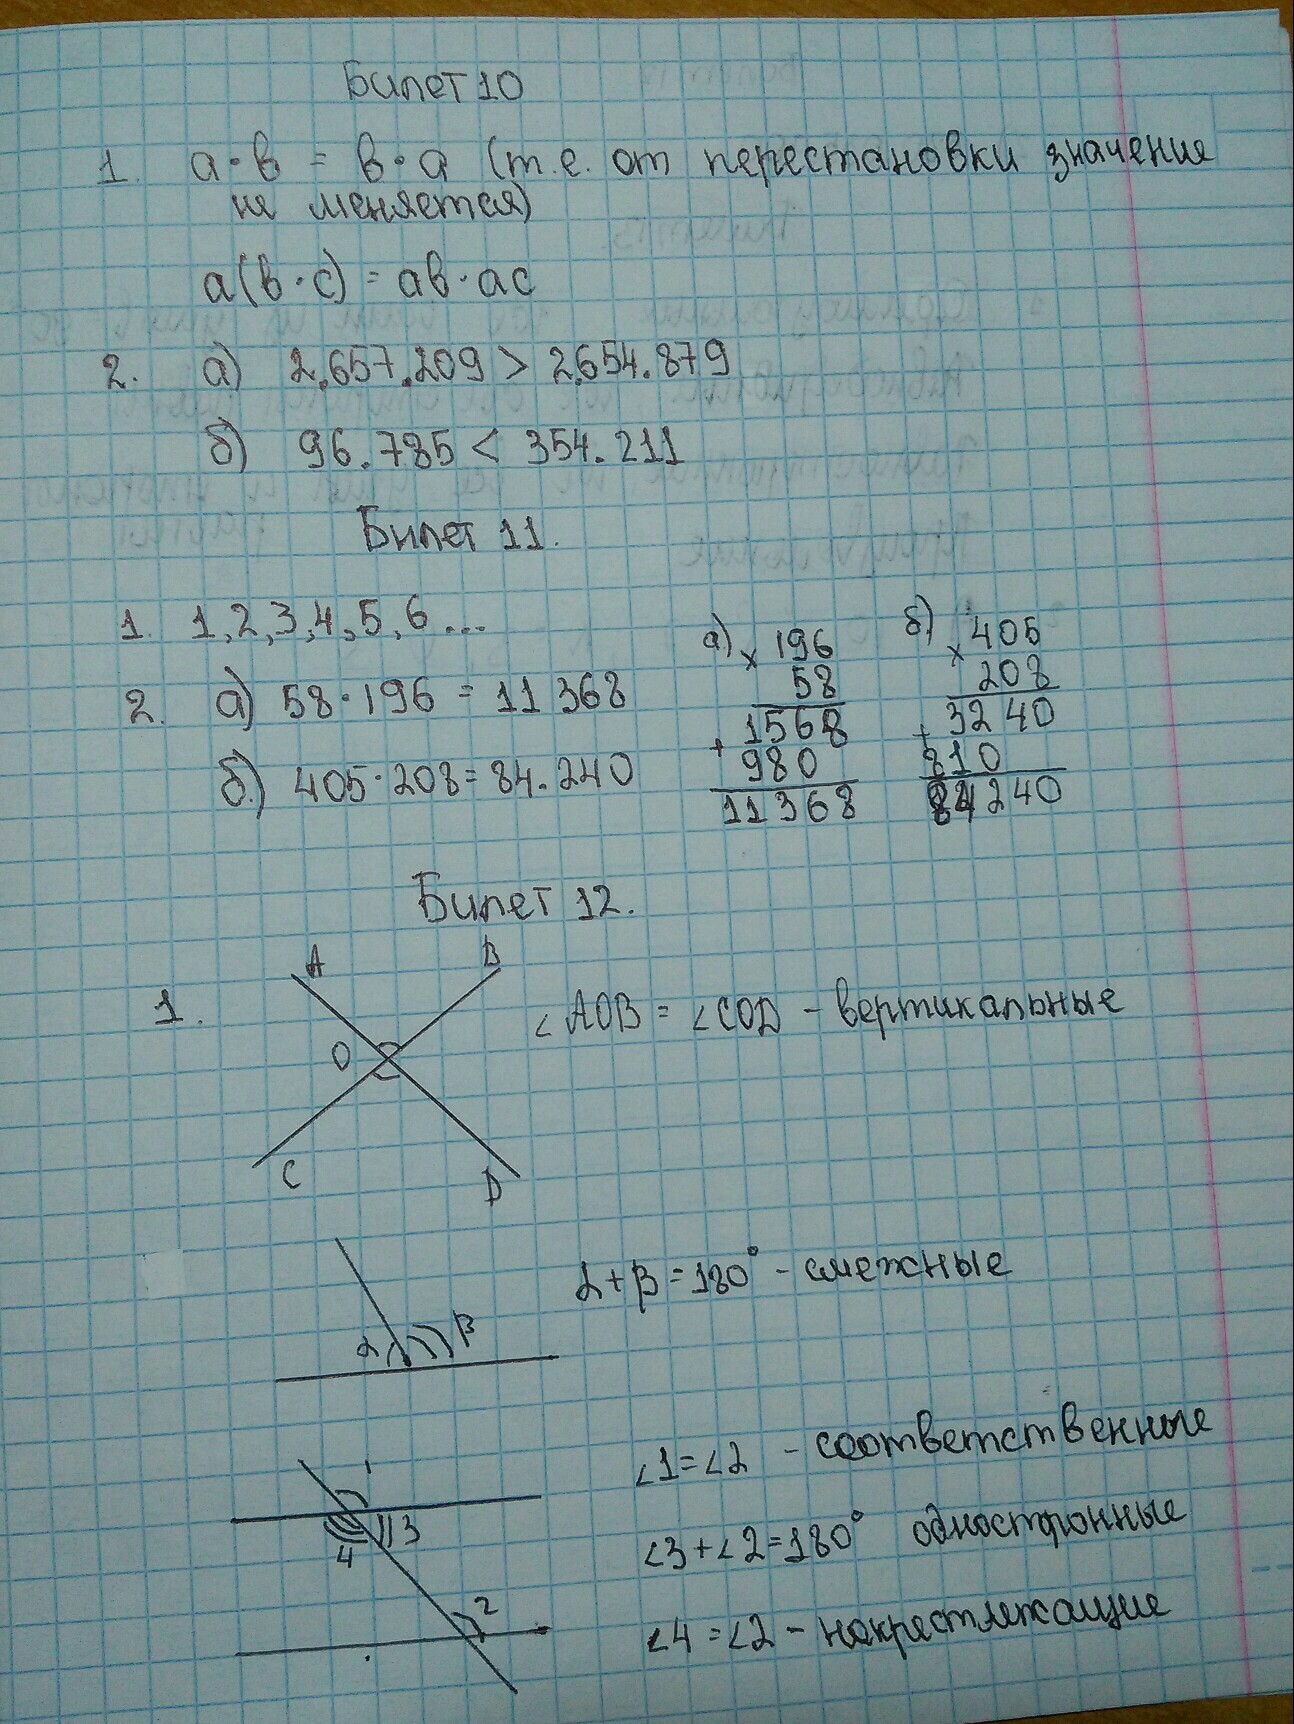 Билет 10
1. а·в = в·а (т.е. от перестановки значение
не меняется)
а(в·с) = ав·ас
2. а) 2.657.209 > 2.654.879
б) 96.785 < 354.211
Билет 11.
1. 1,2,3,4,5,6...
2. а) 58·196 = 11 368
б.) 405·208 = 84.240
а) × 196
58
+ 1568
980
11368
б) × 405
208
+ 3240
810
84240
Билет 12.
1.
A B
O
C D
∠AOB = ∠COD - вертикальные
α β
α+β=180° - смежные
1
3
4
2
∠1=∠2 - соответственные
∠3+∠2=180° односторонные
∠4=∠2 - накрестлежащие